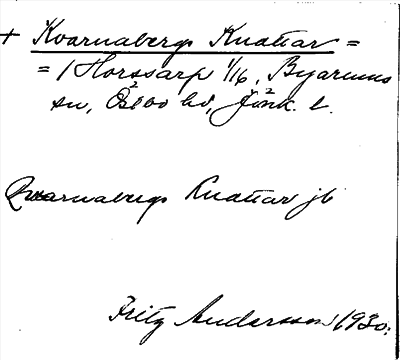 + Kvarnabergs Knattar =
= / Horssarp 1/16, Byarums
sn, Östbo hd, Jönk. l.
Qvarnabergs Knattar jb
Fritz Andersson 1930.